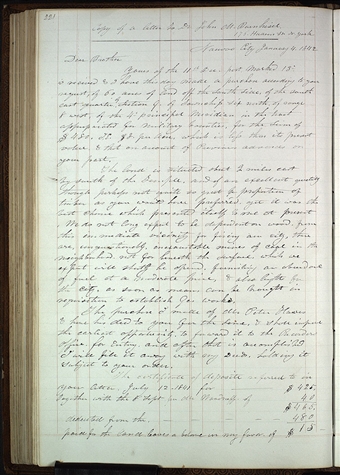 221
Copy of a letter to Dr. John M. Bernhisel
175 Hudson St. N. York
Nauvoo City, January 4, 1842
Dear Brother
Yours of the 11th Dec. post marked 13th
is received & I have this day made a purchase according to your
request, of 60 acres of land off the South side of the south
east quarter section 9, of Township six north, of range
8 west, of the 4th principal Meridian in the tract
appropriated for Military bounties, for the Sum of
$480. or $8 per acre, which is less than its present
value, & that on account of Pecuniary advances on
your part.
The land is situated about 2 miles east
by south of the Temple, and is of an excellent quality
though perhaps not quite so great a proportion of
timber as you would have preferred, yet it was the
best choice which presented itself to me at present
We do not long expect to be dependent on wood from
the immediate vicinity for firing our city, there
are, unquestionably, inexhaustible mines of coal in the
neighborhood, not far beneath the surface, which we
expect will shortly be opened, furnishing an abundance
of fuel at a moderate price, & also lights for
the City, as soon as means can be brought in
requisition to establish Gas works.
This purchase I made of Mr. Peter Hawes
& have his deed to your Gun the same, & shall improve
the earliest opportunity to forward it to the Recorders
Office for Entry, and after that is accomplished
I will file it away with my Deeds, holding it
subject to your order.
The certificate of deposite referred to in
your letter July 12 - 1841 for $425.
Together with the 8th Sept. in the hands of 40
$465.
deducted from the 480
paid for the land leaves a balance in my favor of $15